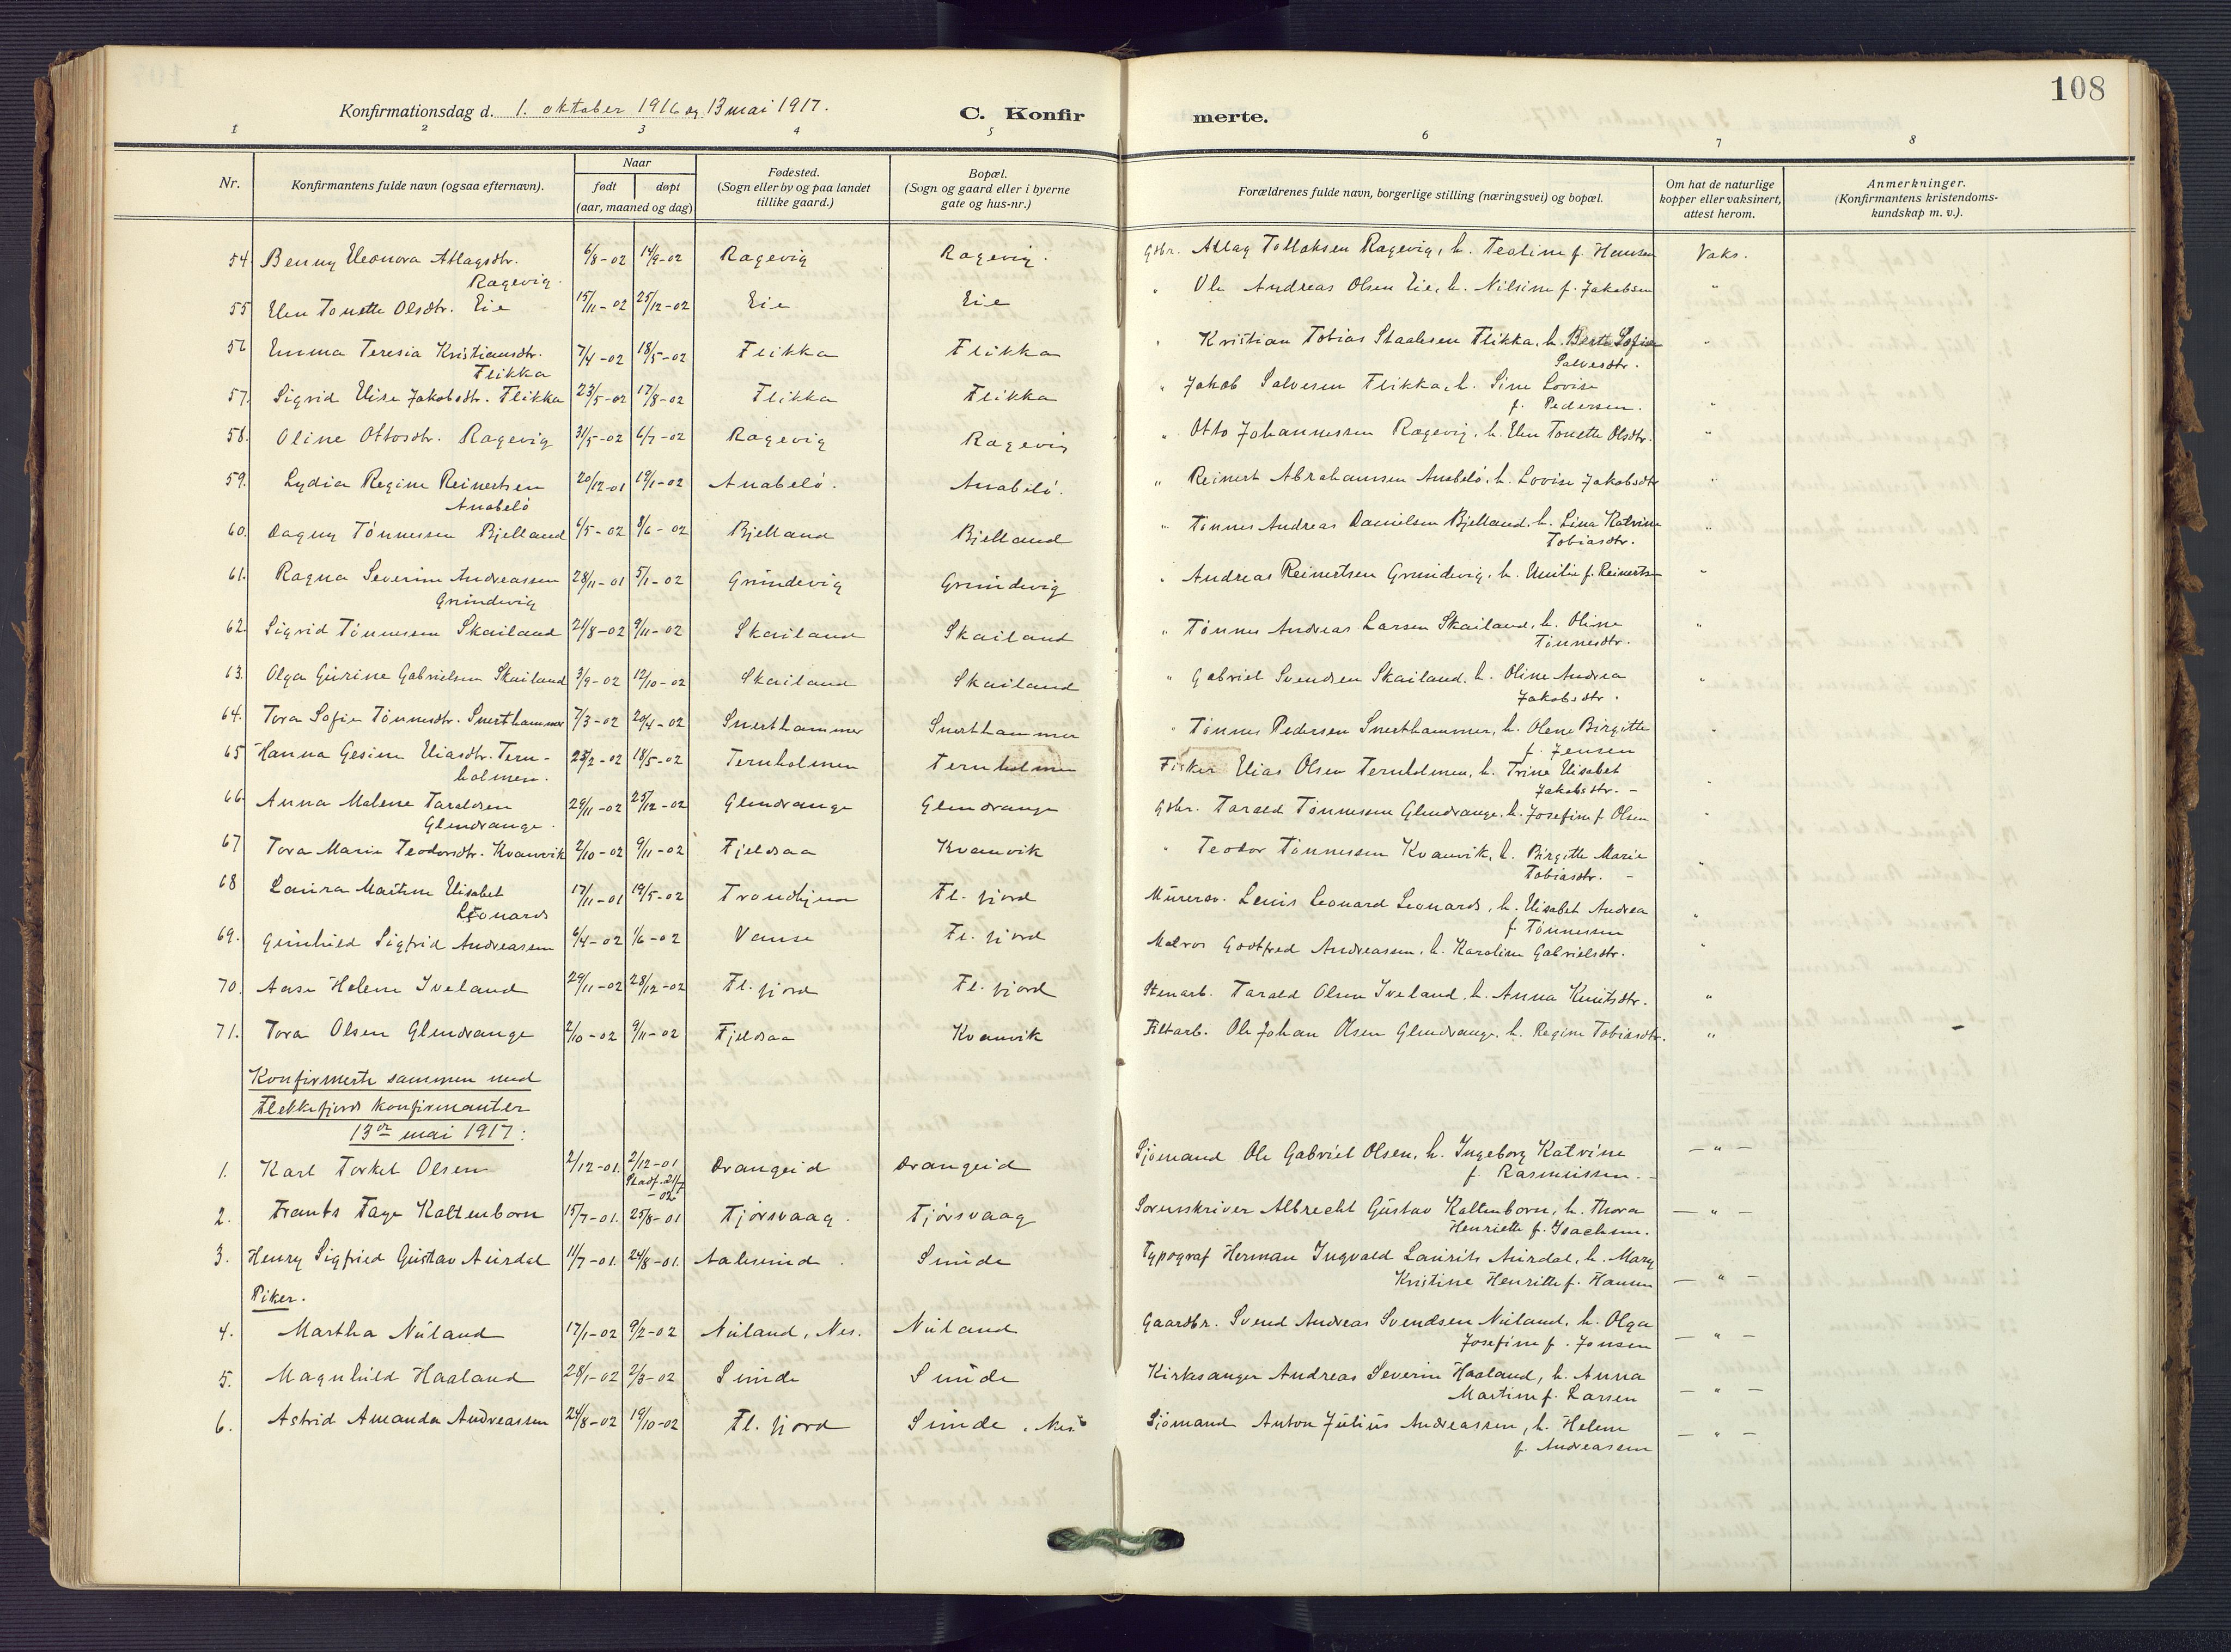 108
Konfirmationsdag d. 1. oktober 1916 og 13 mai 1917.
C. Konfirmerte.
1 2 3 4 5 6 7 8
Nr.
Konfirmantens fulde navn (ogsaa efternavn).
Naar
født døpt
(aar, maaned og dag)
Fødested.
(Sogn eller by og paa landet
tillike gaard.)
Bopæl.
(Sogn og gaard eller i byerne
gate og hus-nr.)
Forældrenes fulde navn, borgerlige stilling (næringsvei) og bopæl.
Om hat de naturlige
kopper eller vaksinert,
attest herom.
Anmerkninger.
(Konfirmantens kristendoms-
kundskap m. v.).
54 Benny Eleonora Atlagsdtr. 6/8-02 14/9-02 Ragevig Ragevig. Gdbr. Atlag Tollaksen Ragevig, h. Teoline f. Hansen Vaks.
Ragevig.
55 Elen Tonette Olsdtr. Eie 15/11-02 25/12-02 Eie Eie " Ole Andreas Olsen Eie, h. Nilsine f. Jakobsen "
56 Emma Teresia Kristiansdtr. 7/4-02 18/5-02 Flikka Flikka " Kristian Tobias Staalesen Flikka, h. Berte Sofie "
Flikka Salvesdtr.
57. Sigrid Elise Jakobsdtr. Flikka 23/5-02 17/8-02 Flikka Flikka " Jakob Salvesen Flikka, h. Sine Lovise
f. Pedersen. "
58. Oline Ottosdtr. Ragevig 31/5-02 6/7-02 Ragevig Ragevig " Otto Johannessen Ragevig, h. Elen Tonette Olsdtr. "
59. Lydia Regine Reinertsen 20/12-01 19/1-02 Anabelö. Anabelö. " Reinert Abrahamsen Anabelö, h. Lovise Jakobsdtr "
Anabelö
60. Dagny Tönnessen Bjelland 6/5-02 8/6-02 Bjelland Bjelland " Tönnes Andreas Danielsen Bjelland, h. Lina Katrine "
Tobiasdtr.
61. Ragna Severine Andreassen 28/11-01 5/1-02 Grundevig Grundevig " Andreas Reinertsen Grundevig, h. Emilie f. Reinertsen "
Grundevig
62. Sigrid Tönnessen Skailand 21/8-02 9/11-02 Skailand Skailand " Tönnes Andreas Larsen Skailand, h. Oline "
Tönnesdtr.
63. Olga Gurine Gabrielsen Skailand 3/9-02 12/10-02 Skailand Skailand " Gabriel Svendsen Skailand, h. Oline Andrea "
Jakobsdtr.
64. Tora Sofie Tönnesdtr. Snerthammer 7/3-02 20/4-02 Snerthammer Snerthammer " Tönnes Pedersen Snerthammer, h. Olene Birgitte "
f. Jensen
65 Hanna Gesine Eliasdtr. Tern- 23/2-02 18/5-02 Ternholmen Ternholmen Fisker Elias Olsen Ternholmen, h. Trine Elisabet "
holmen. Jakobsdtr. -
66. Anna Malene Taraldsen 29/11-02 25/12-02 Glendrange Glendrange Gdbr. Tarald Tönnessen Glendrange, h. Josefine f. Olsen "
Glendrange.
67 Tora Marie Teodorsdtr. Kvanvik 2/10-02 9/11-02 Fjeldsaa Kvanvik " Teodor Tönnessen Kvanvik, h. Birgitte Marie "
Tobiasdtr. -
68 Laura Martine Elisabet 17/11-01 19/5-02 Trondhjem Fl. fjord Murerarb. Lenis Leonard Leonards, h. Elisabet Andrea "
Leonards f. Tönnessen
69. Gunhild Sigfrid Andreassen 6/4-02 1/6-02 Vanse Fl. fjord Matros Godtfred Andreassen, h. Karoline Gabrielsdtr. "
70. Aase Helene Iveland 29/11-02 28/12-02 Fl. fjord Fl. fjord Stenarb. Tarald Olsen Iveland, h. Anna Knutsdtr. "
71. Tora Olsen Glendrange 2/10-02 9/11-02 Fjeldsaa Kvanvik Filtarb. Ole Johan Olsen Glendrange, h. Regine Tobiasdtr. "
Konfirmerte sammen med
Flekkefjords konfirmanter
13de mai 1917:
1. Karl Torkel Olsen 2/12-01. 2/12-01 Drangeid Drangeid Sjömand Ole Gabriel Olsen, h. Ingeborg Katrine - " -
Stadf. 21/7 -02 f. Rasmussen. -
2. Frants Tage Kaltenborn 15/7-01. 25/8-01 Tjörsvaag. Tjörsvaag Sorenskriver Albrecht Gustav Kaltenborn, h. Thora - " -
Henriette f. Joachim.
3. Henry Sigfried Gustav Aursdal 11/7-01. 24/8-01. Aalesund. Sunde Typograf Herman Ingvald Laurits Aursdal, h. Mary
Kristine Henritte f. Hansen - " -
Piker.
4. Martha Nuland 17/1-02 9/2-02 Nuland, Nes. Nuland Gaardbr. Svend Andreas Svendsen Nuland, h. Olga
Josefine f. Jonsen - " -
5. Magnhild Haaland 28/1-02 2/3-02 Sunde Sunde Kirkesanger Andreas Severin Haaland, h. Anna
Martine f. Larsen - " -
6. Astrid Amanda Andreassen 24/8-02 19/10-02 Fl. fjord Sunde, Nes. Sjömand Anton Julius Andreassen, h. Helene
f. Andreassen - " -